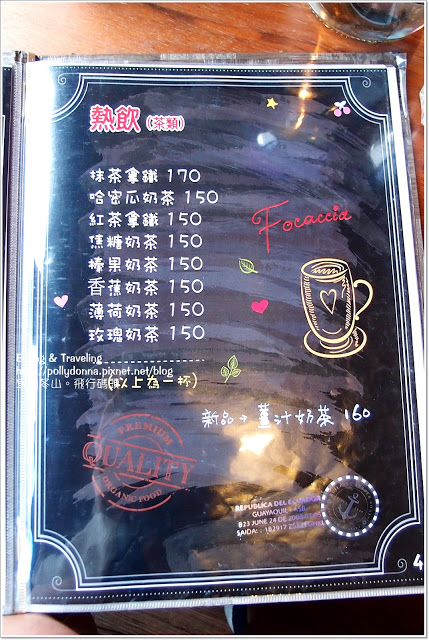 熱飲 (茶類)
抹茶拿鐵 170
哈密瓜奶茶 150
紅茶拿鐵 150
焦糖奶茶 150
榛果奶茶 150
香蕉奶茶 150
薄荷奶茶 150
玫瑰奶茶 150
Focaccia
& Traveling
pollydonna.pixnet.net/blog
冬山。飛行碼
(以上為一杯)
新品→薑汁奶茶 160
PREMIUM
QUALITY
ORGANIC FOOD
REPUBLICA DEL ECUADOR
GUAYAQUIL
B23 JUNE 24 DE
SAIDA: : 182912
4